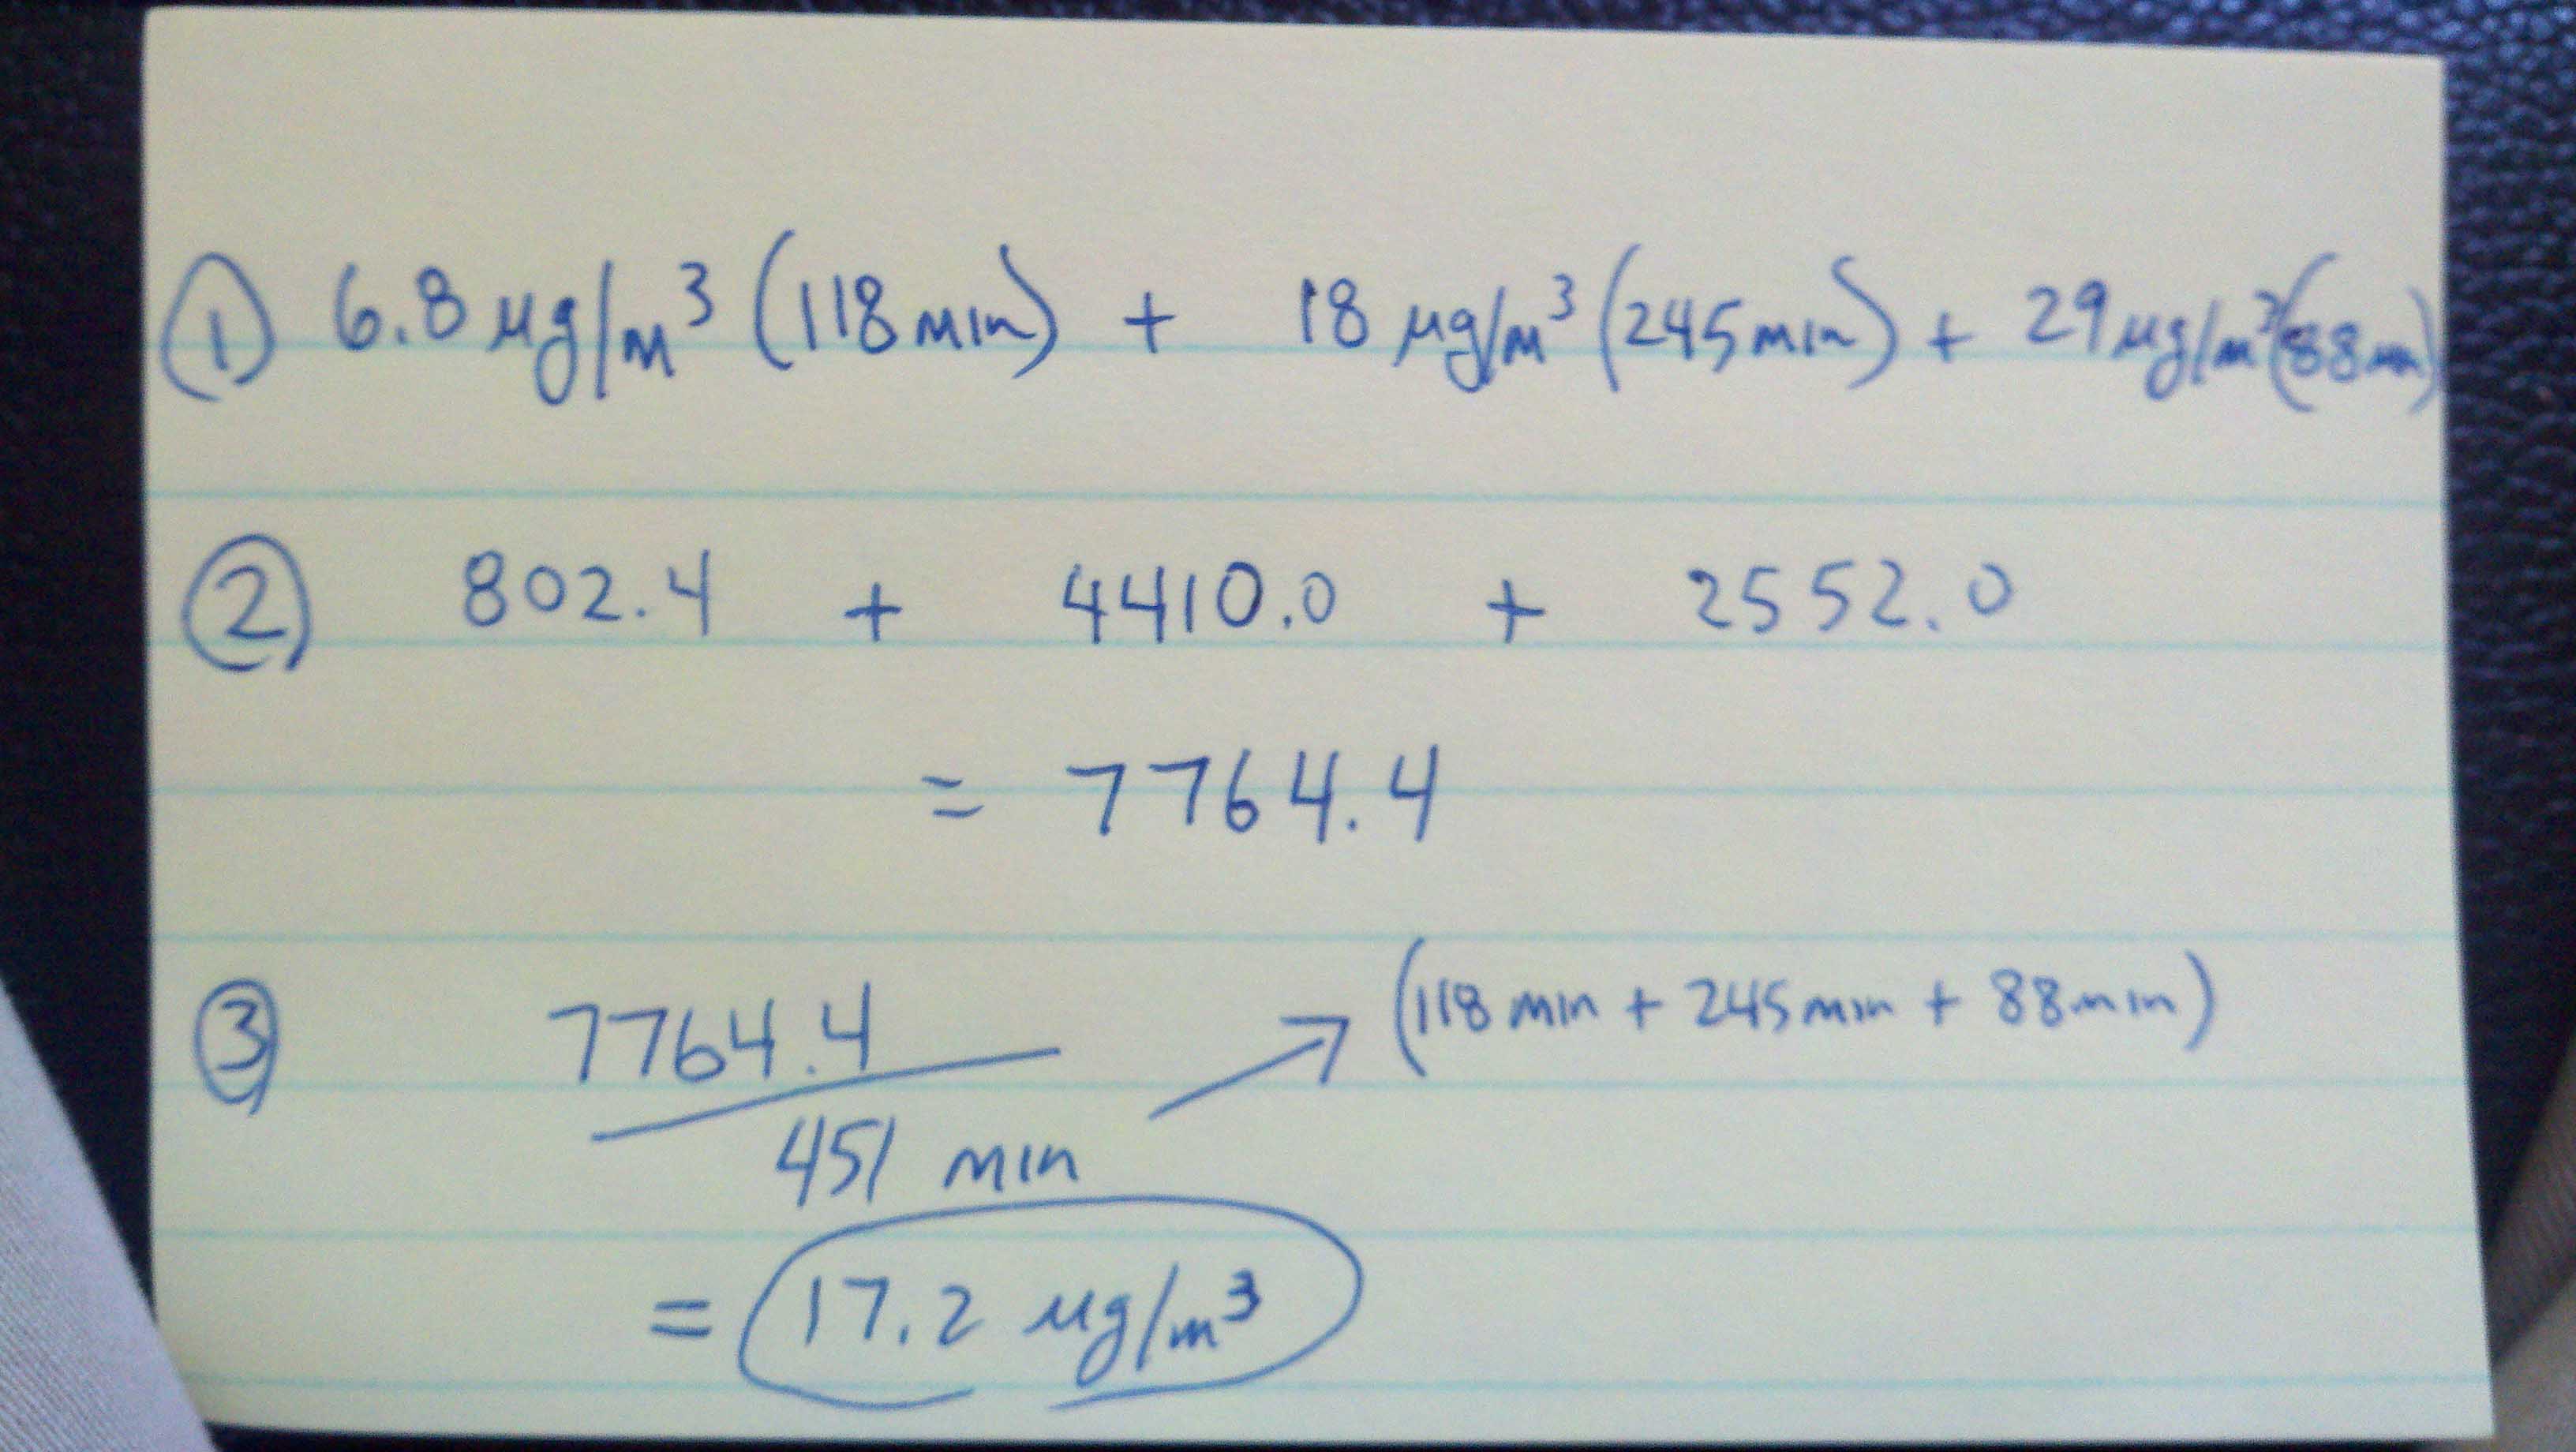 ① 6.8 μg/m³ (118 min) + 18 μg/m³ (245 min) + 29 μg/m³ (88 min)
② 802.4 + 4410.0 + 2552.0
= 7764.4
③ 7764.4 (118 min + 245 min + 88 min)
451 min
= 17.2 μg/m³